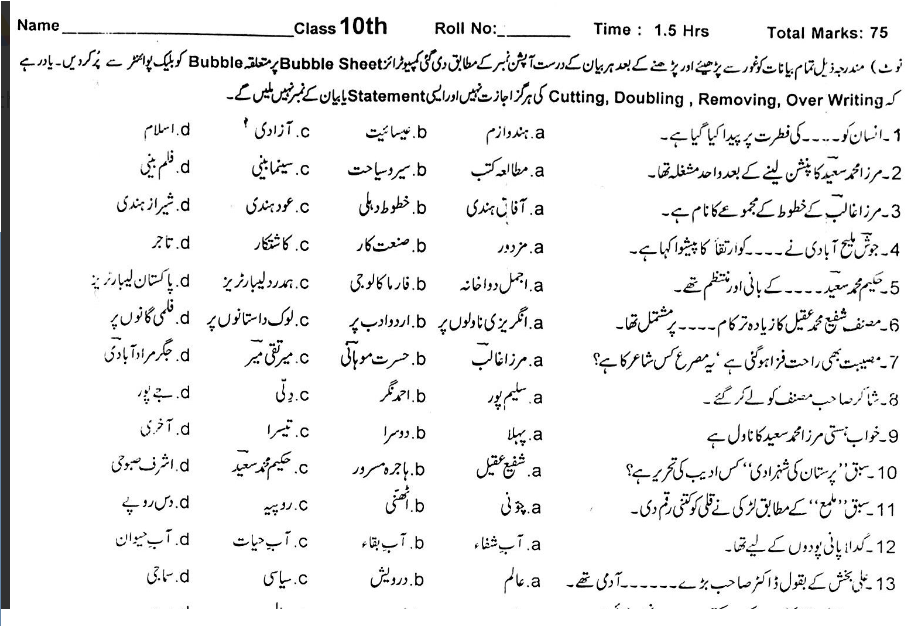 Name ____________________ Class 10th Roll No:_________ Time : 1.5 Hrs Total Marks: 75
نوٹ) مندرجہ ذیل تمام بیانات کو غور سے پڑھیئے اور پڑھنے کے بعد ہر بیان کے درست آپشن نمبر کے مطابق دی گئی کمپیوٹرائز Bubble Sheet پر متعلقہ Bubble کو بلیک پوائنٹر سے پُر کردیں۔ یاد رہے
کہ Cutting, Doubling , Removing, Over Writing کی ہرگز اجازت نہیں اور ایسی Statement یا بیان کے نمبر نہیں ملیں گے۔
1۔ انسان کو۔۔۔۔ کی فطرت پر پیدا کیا گیا ہے۔ a. ہندوازم b. عیسائیت c. آزادی d. اسلام
2۔ مرزا محمد سعید کا پنشن لینے کے بعد واحد مشغلہ تھا۔ a. مطالعہ کتب b. سیر و سیاحت c. سینما بینی d. فلم بینی
3۔ مرزا غالب کے خطوط کے مجموعے کا نام ہے۔ a. آفاق ہندی b. خطوط دہلی c. عود ہندی d. شیراز ہندی
4۔ جوش ملیح آبادی نے ۔۔۔۔ کو ارتقا کا پیشوا کہا ہے۔ a. مزدور b. صنعت کار c. کاشتکار d. تاجر
5۔ حکیم محمد سعید۔۔۔۔ کے بانی اور منتظم تھے۔ a. اجمل دواخانہ b. فارماکالوجی c. ہمدرد لیبارٹریز d. پاکستان لیبارٹریز
6۔ مصنف شفیع محمد عقیل کا زیادہ تر کام ۔۔۔۔ پر مشتمل تھا۔ a. انگریزی ناولوں پر b. اردو ادب پر c. لوک داستانوں پر d. فلمی گانوں پر
7۔ مصیبت بھی راحت فزا ہوگئی ہے ‘ یہ مصرع کس شاعر کا ہے؟ a. مرزا غالب b. حسرت موہانی c. میر تقی میر d. جگر مراد آبادی
8۔ شاکر صاحب مصنف کو لے کر گئے۔ a. سلیم پور b. احمد نگر c. دلّی d. جے پور
9۔ خواب ہستی مرزا محمد سعید کا ناول ہے a. پہلا b. دوسرا c. تیسرا d. آخری
10۔ سبق ’’پرستان کی شہزادی‘‘ کس ادیب کی تحریر ہے؟ a. شفیع عقیل b. ہاجرہ مسرور c. حکیم محمد سعید d. اشرف صبوحی
11۔ سبق ’’ملمع‘‘ کے مطابق لڑکی نے قلی کو کتنی رقم دی۔ a. چونی b. اٹھنی c. روپیہ d. دس روپے
12۔ گدلا پانی پودوں کے لیے تھا۔ a. آب شفاء b. آب بقاء c. آب حیات d. آب حیوان
13۔ علی بخش کے بقول ڈاکٹر صاحب بڑے ۔۔۔۔۔۔ آدمی تھے۔ a. عالم b. درویش c. سیاسی d. سماجی